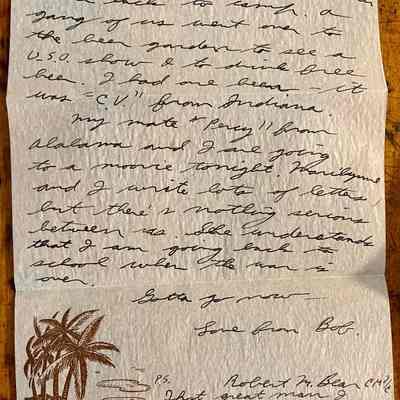 back to camp. a
gang of us went over to
the beer garden to see a
U.S.O. show & to drink free
beer. I had one beer - it
was "C.V." from Indiana.
My mate "Percy" from
Alabama and I are going
to a movie tonight. Marilynne
and I write lots of letters,
but there's nothing serious
between us. She understands
that I am going back to
school when the war is
over.
Gotta go now—
Love from Bob.
P.S. Robert M. Bear
That great man I